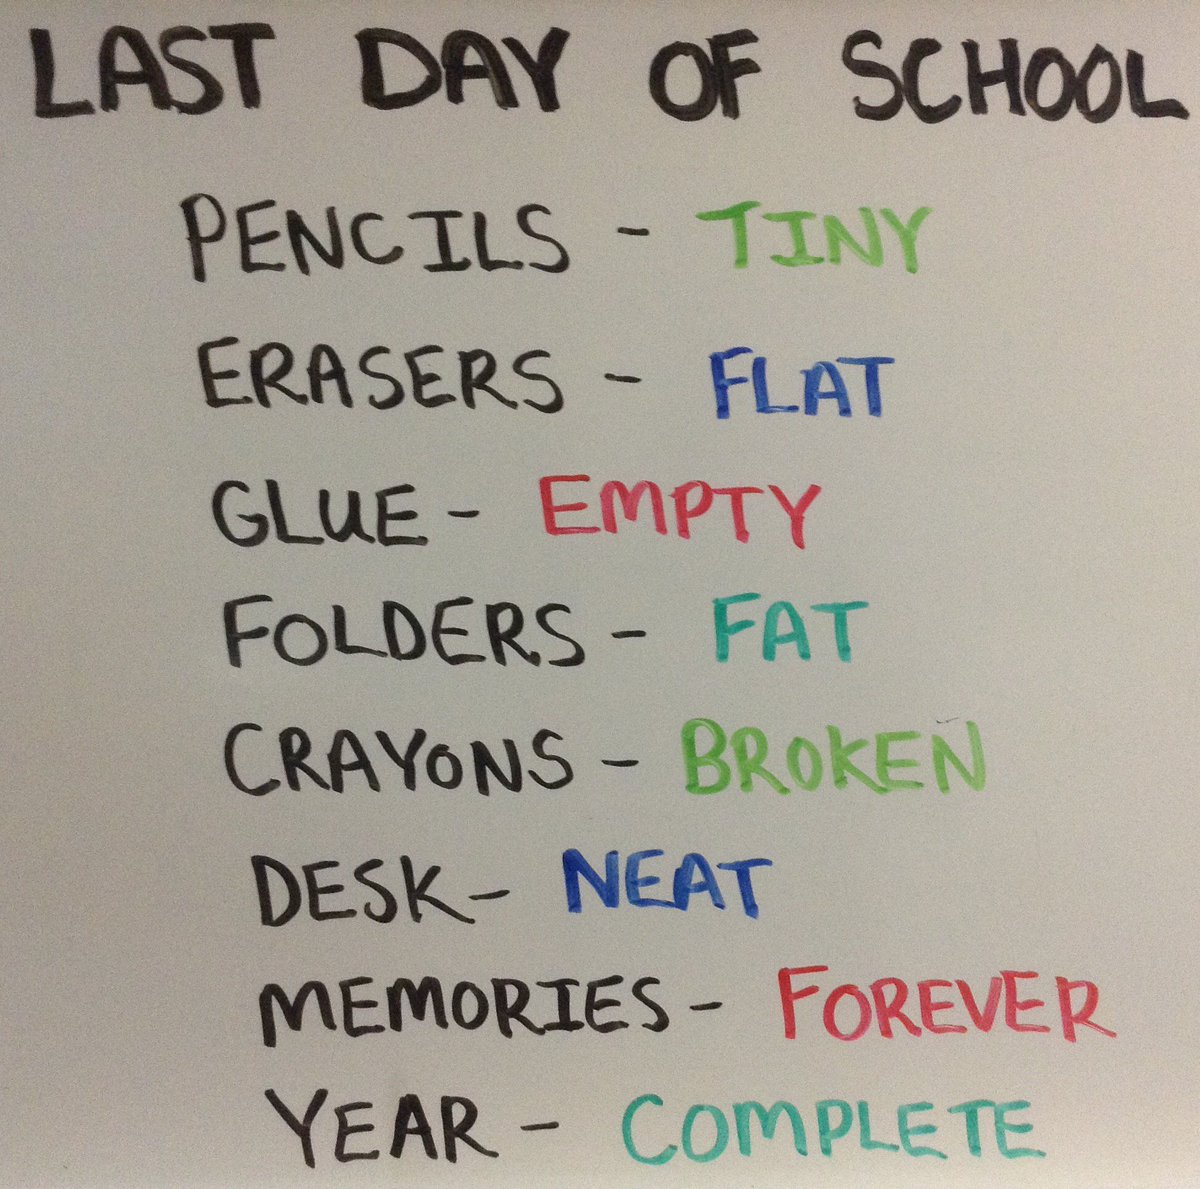 LAST DAY OF SCHOOL
PENCILS - TINY
ERASERS - FLAT
GLUE - EMPTY
FOLDERS - FAT
CRAYONS - BROKEN
DESK - NEAT
MEMORIES - FOREVER
YEAR - COMPLETE